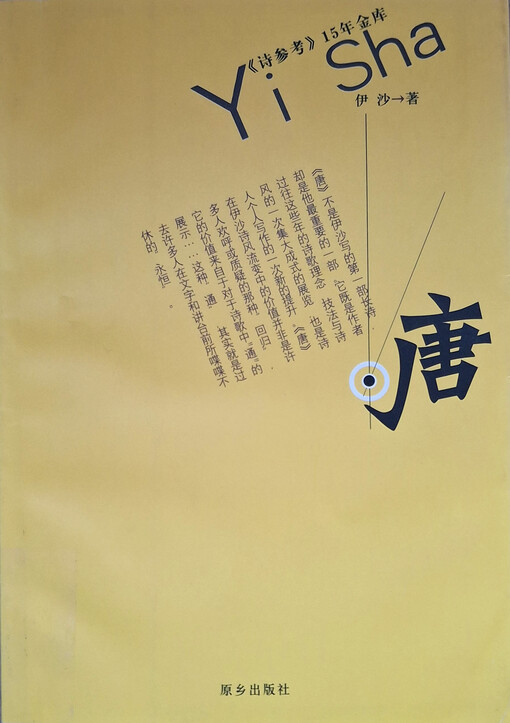 《诗参考》15年金库
Yi Sha
伊 沙→著
《唐》不是伊沙写的第一部长诗，
却是他最重要的一部 它既是作者
过往这些年的诗歌理念 技法与诗
风的一次集大成式的展览 也是诗
人个人写作的一次新的提升 《唐》
在伊沙诗风流变中的价值并非是许
多人欢呼或质疑的那种 回归
它的价值来自于对于诗歌中“通”的
展示……这种 通 其实就是过
去许多人在文字和讲台前所喋喋不
休的 永恒 。
唐
原乡出版社